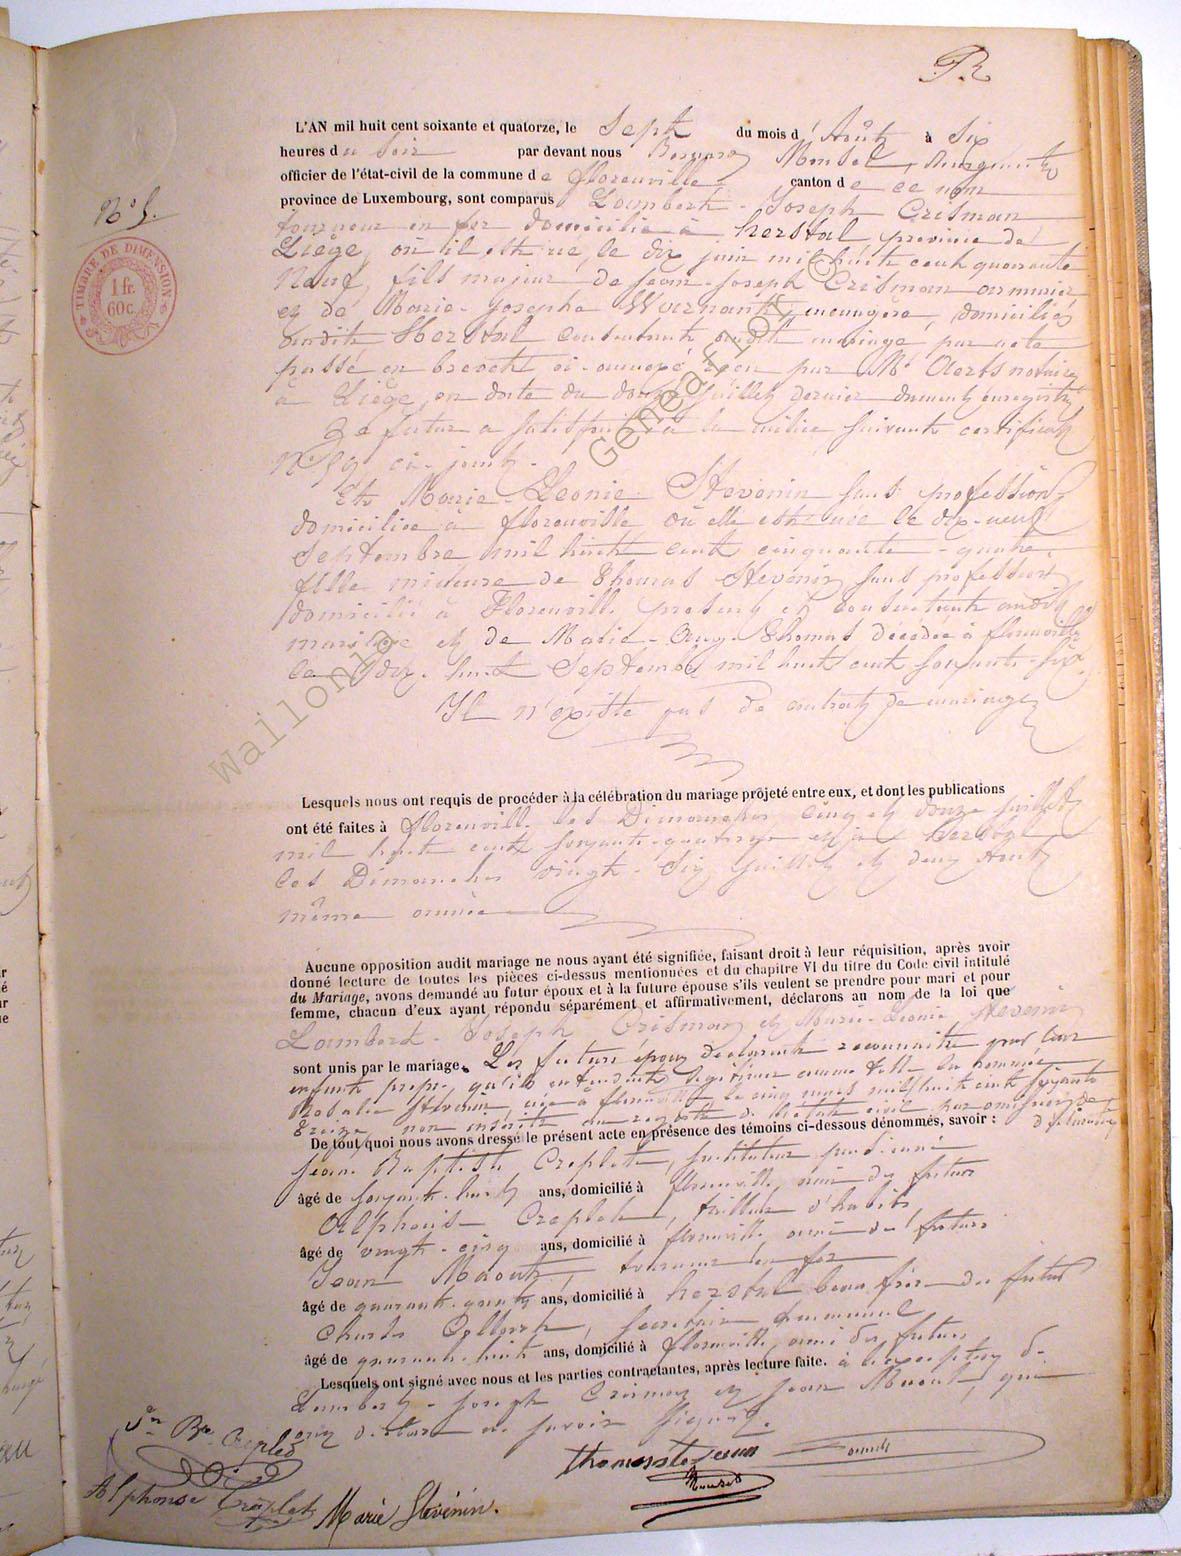 L'AN mil huit cent soixante et quatorze, le Sept du mois d'Août à Six
heures du soir par devant nous Mondel, bourgmestre
officier de l'état-civil de la commune de florenville canton de ce nom
province de Luxembourg, sont comparus Lambert-Joseph Crisman
N° 9.
tourneur en fer domicilié à herstal province de
Liège, où il est né, le dix juin mil huit cent quarante
TIMBRE DE DIMENSION
1 fr.
60 c.
Neuf, fils majeur de jean-joseph Crisman armurier
et de Marie-josephe Wernants, menagère, domiciliés
audit Herstal consentants audit mariage par acte
passé en brevet ci-annexé reçu par Mr Aerts notaire
à Liège, en date du douze juillet dernier dument enregistré
Le futur a satisfait à la milice suivant certificat
ci-joint.
Et Marie-Leonie Stevenin sans profession
domiciliée à florenville où elle est née le dix-neuf
Septembre mil huit cent cinquante-quatre,
fille mineure de Thomas Stevenin sans profession
domicilié à Florenville present et consentant audit
mariage et de Marie-Thomas décédée à florenville
le dix-huit Septembre mil huit cent soixante-six
Il n'existe pas de contrat de mariage
Wallonie GeneaFlor ©
Lesquels nous ont requis de procéder à la célébration du mariage projeté entre eux, et dont les publications
ont été faites à florenville les Dimanches Cinq et douze juillet
mil huit cent soixante-quatorze et à herstal
les Dimanches vingt-Six juillet et deux Août
même année
Aucune opposition audit mariage ne nous ayant été signifiée, faisant droit à leur réquisition, après avoir
donné lecture de toutes les pièces ci-dessus mentionnées et du chapitre VI du titre du Code civil intitulé
du Mariage, avons demandé au futur époux et à la future épouse s'ils veulent se prendre pour mari et pour
femme, chacun d'eux ayant répondu séparément et affirmativement, déclarons au nom de la loi que
Lambert-Joseph Crisman et Marie-Leonie Stevenin
sont unis par le mariage. Les futurs époux declarent reconnaitre pour leur
enfant propre, qu'ils entendent legitimer comme telle la nommée
Rosalie Stevenin, née à florenville le cinq mars mil huit cent soixante
treize, non inscrite au registre de l'état civil par omission de
De tout quoi nous avons dressé le présent acte en présence des témoins ci-dessous dénommés, savoir :
Jean Baptiste Creplet, instituteur pensionné
âgé de soixante-huit ans, domicilié à florenville, ami des futurs
Alphonse Creplet, tailleur d'habits,
âgé de vingt-cinq ans, domicilié à florenville ami des futurs
Jean Maout, tourneur en fer
âgé de quarante-quatre ans, domicilié à herstal beau frère du futur
Charles Collart, secrétaire communal
âgé de quarante-huit ans, domicilié à florenville, ami des futurs
Lesquels ont signé avec nous et les parties contractantes, après lecture faite. à l'exception de
Lambert-Joseph Crisman et Jean Maout, qui
ont déclaré ne savoir signer.
Jn Bte Creplet
thomas stevenin
Alphonse Creplet
Marie Stévénin.